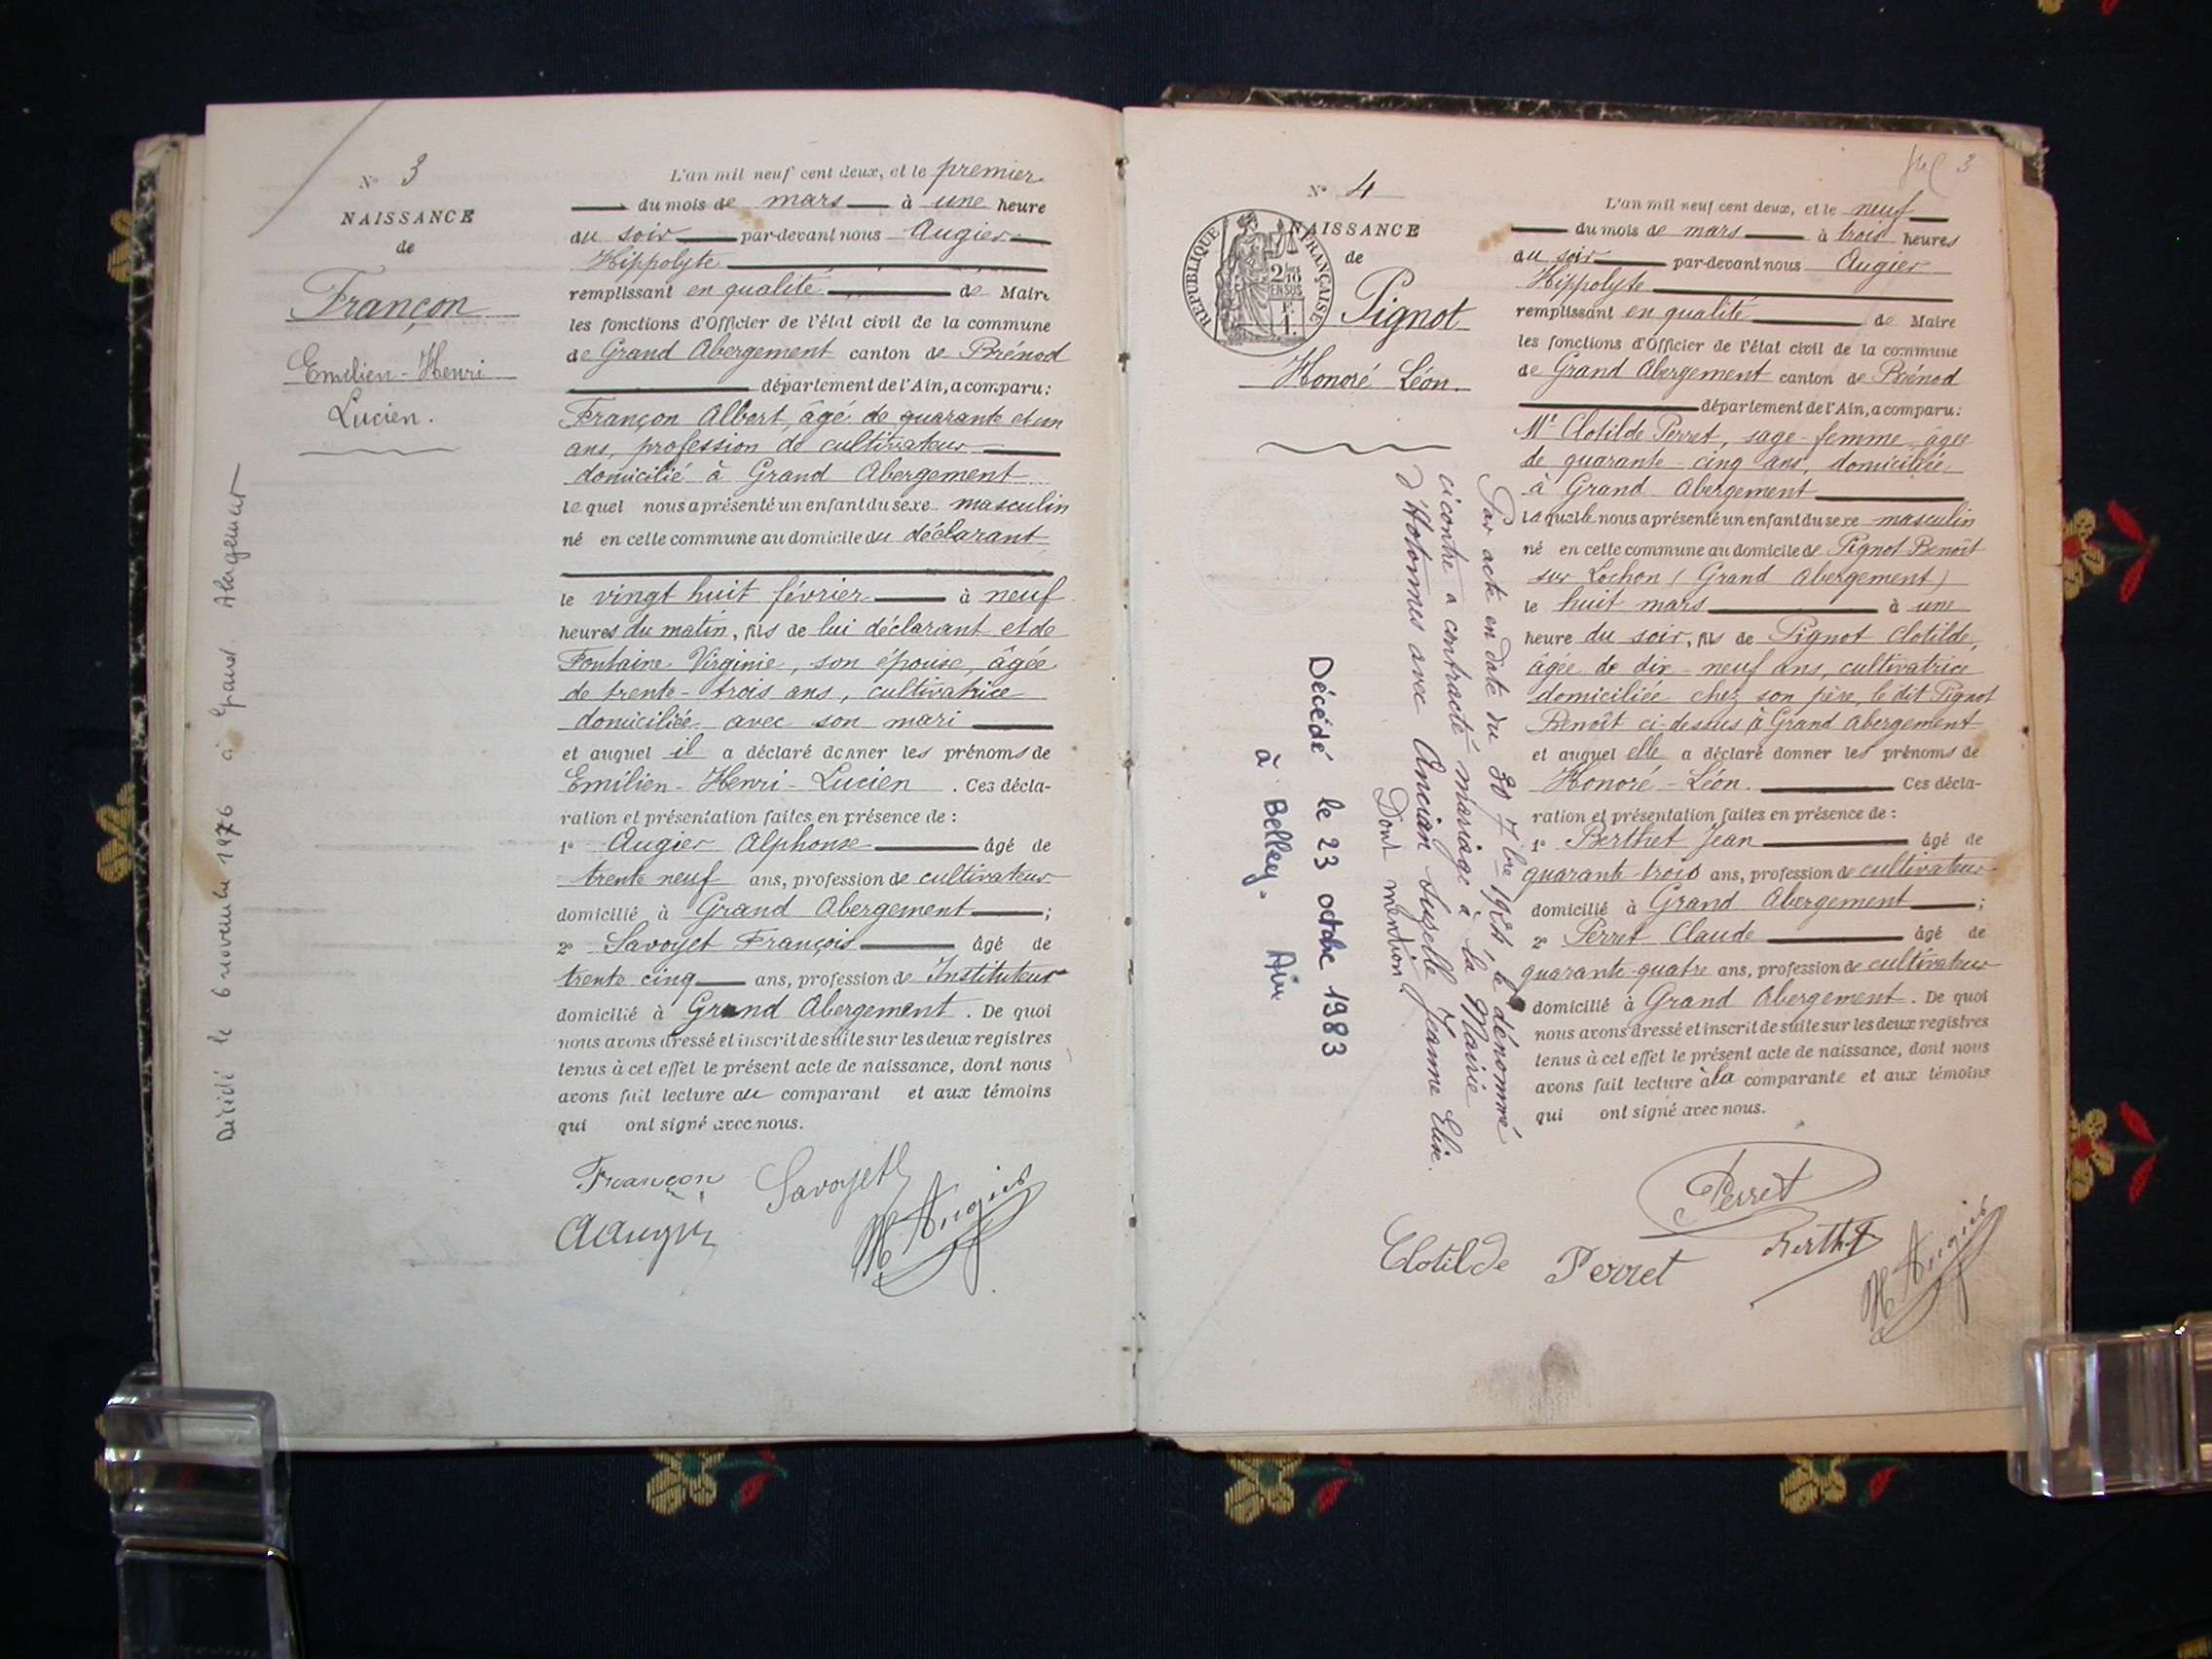 N° 3
NAISSANCE
de
Françon
Emilien-Henri
Lucien.
Décédé le 6 novembre 1976 à Grand Abergement
L'an mil neuf cent deux, et le premier
du mois de mars à une heure
du soir par-devant nous Augier
Hippolyte
remplissant en qualité de Maire
les fonctions d'Officier de l'état civil de la commune
de Grand Abergement canton de Brénod
département de l'Ain, a comparu:
Françon Albert, âgé de quarante et un
ans, profession de cultivateur
domicilié à Grand Abergement
lequel nous a présenté un enfant du sexe masculin
né en cette commune au domicile du déclarant
le vingt huit février à neuf
heures du matin, fils de lui déclarant et de
Fontaine Virginie, son épouse, âgée
de trente-trois ans, cultivatrice
domiciliée avec son mari
et auquel il a déclaré donner les prénoms de
Emilien-Henri-Lucien. Ces décla-
ration et présentation faites en présence de :
1° Augier Alphonse âgé de
trente neuf ans, profession de cultivateur
domicilié à Grand Abergement ;
2° Savoyet François âgé de
trente cinq ans, profession de Instituteur
domicilié à Grand Abergement. De quoi
nous avons dressé et inscrit de suite sur les deux registres
tenus à cet effet le présent acte de naissance, dont nous
avons fait lecture au comparant et aux témoins
qui ont signé avec nous.
Françon Savoyet
A Augier H Augier
3
N° 4
REPUBLIQUE FRANÇAISE
2/10
EN SUS
1F.
NAISSANCE
de
Pignot
Honoré Léon.
Par acte en date du 30 7bre 19 le dénommé
ci contre a contracté mariage à la Mairie
d'Hotonnes avec Ancian Suzelle Jeanne Elise.
Dont mention
Décédé le 23 octobre 1983
à Belley. Ain
L'an mil neuf cent deux, et le neuf
du mois de mars à trois heures
du soir par-devant nous Augier
Hippolyte
remplissant en qualité de Maire
les fonctions d'Officier de l'état civil de la commune
de Grand Abergement canton de Brénod
département de l'Ain, a comparu:
Clotilde Perret, sage-femme, âgée
de quarante-cinq ans, domiciliée
à Grand Abergement
laquelle nous a présenté un enfant du sexe masculin
né en cette commune au domicile de Pignot Benoît
sur Lochon (Grand Abergement)
le huit mars à une
heure du soir, fils de Pignot Clotilde,
âgée de dix-neuf ans, cultivatrice
domiciliée chez son père, le dit Pignot
Benoît ci-dessus à Grand Abergement
et auquel elle a déclaré donner les prénoms de
Honoré-Léon. Ces décla-
ration et présentation faites en présence de :
1° Berthet Jean âgé de
quarante-trois ans, profession de cultivateur
domicilié à Grand Abergement ;
2° Perret Claude âgé de
quarante-quatre ans, profession de cultivateur
domicilié à Grand Abergement. De quoi
nous avons dressé et inscrit de suite sur les deux registres
tenus à cet effet le présent acte de naissance, dont nous
avons fait lecture à la comparante et aux témoins
qui ont signé avec nous.
Perret
Clotilde Perret Berthet H Augier